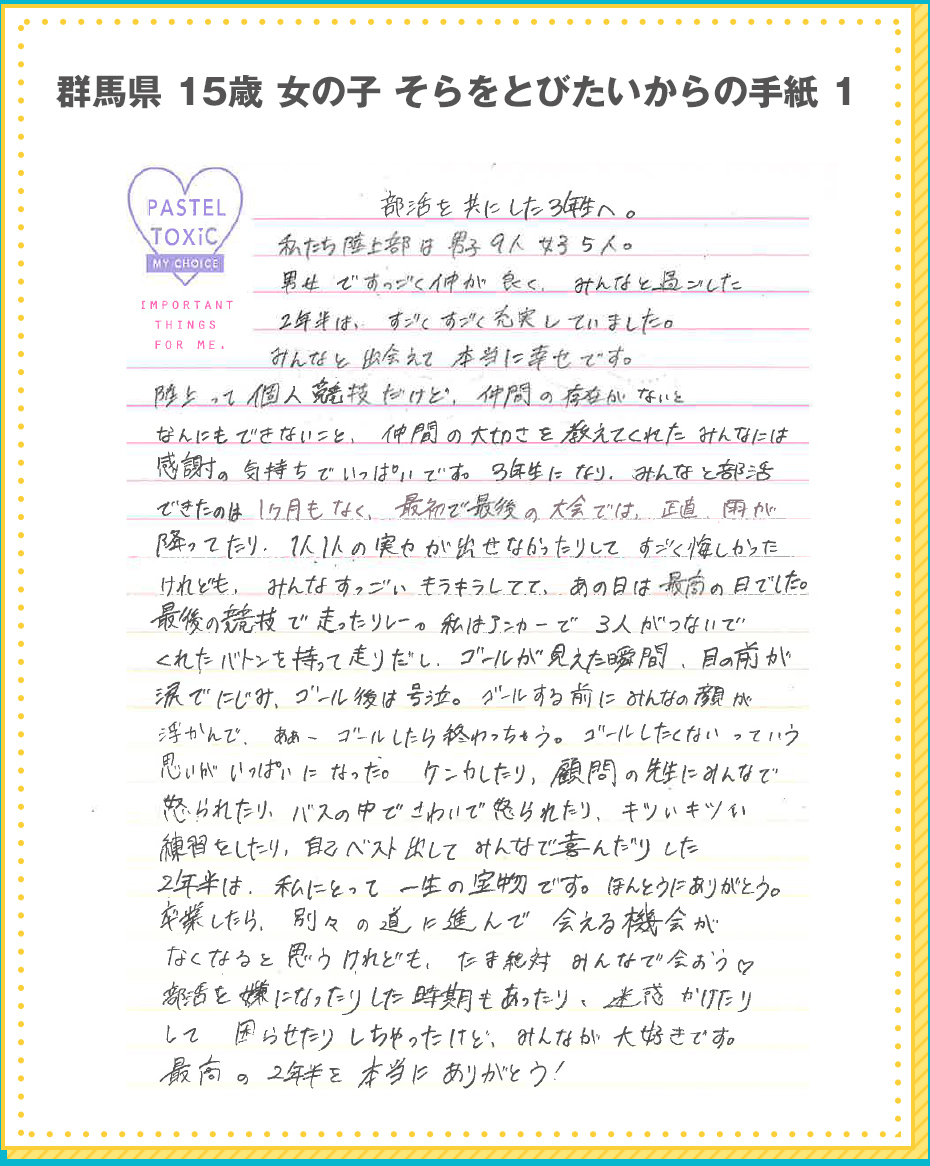 群馬県 15歳 女の子 そらをとびたいからの手紙 1
PASTEL
TOXiC
MY CHOICE
IMPORTANT
THINGS
FOR ME.
部活を共にした3年生へ。
私たち陸上部は男子9人女子5人。
男女ですっごく仲が良く、みんなと過ごした
2年半は、すごくすごく充実していました。
みんなと出会えて本当に幸せです。
陸上って個人競技だけど、仲間の存在がないと
なんにもできないこと、仲間の大切さを教えてくれたみんなには
感謝の気持ちでいっぱいです。3年生になり、みんなと部活
できたのは1ヶ月もなく、最初で最後の大会では、正直、雨が
降ってたり、1人1人の実力が出せなかったりしてすごく悔しかった
けれども、みんなすっごいキラキラしてて、あの日は最高の日でした。
最後の競技で走ったリレー。私はアンカーで3人がつないで
くれたバトンを持って走りだし、ゴールが見えた瞬間、目の前が
涙でにじみ、ゴール後は号泣。ゴールする前にみんなの顔が
浮かんで、あぁーゴールしたら終わっちゃう。ゴールしたくないっていう
思いがいっぱいになった。ケンカしたり、顧問の先生にみんなで
怒られたり、バスの中でさわいで怒られたり、キツいキツい
練習をしたり、自己ベスト出してみんなで喜んだりした
2年半は、私にとって一生の宝物です。ほんとうにありがとう。
卒業したら、別々の道に進んで会える機会が
なくなると思うけれども、たま絶対みんなで会おう♡
部活を嫌になったりした時期もあったり、迷惑かけたり
して困らせたりしちゃったけど、みんなが大好きです。
最高の2年半を本当にありがとう!